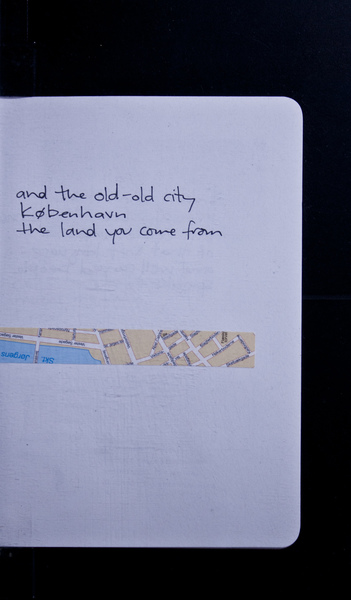 and the old-old city
København
the land you come from
Skt. Jørgens